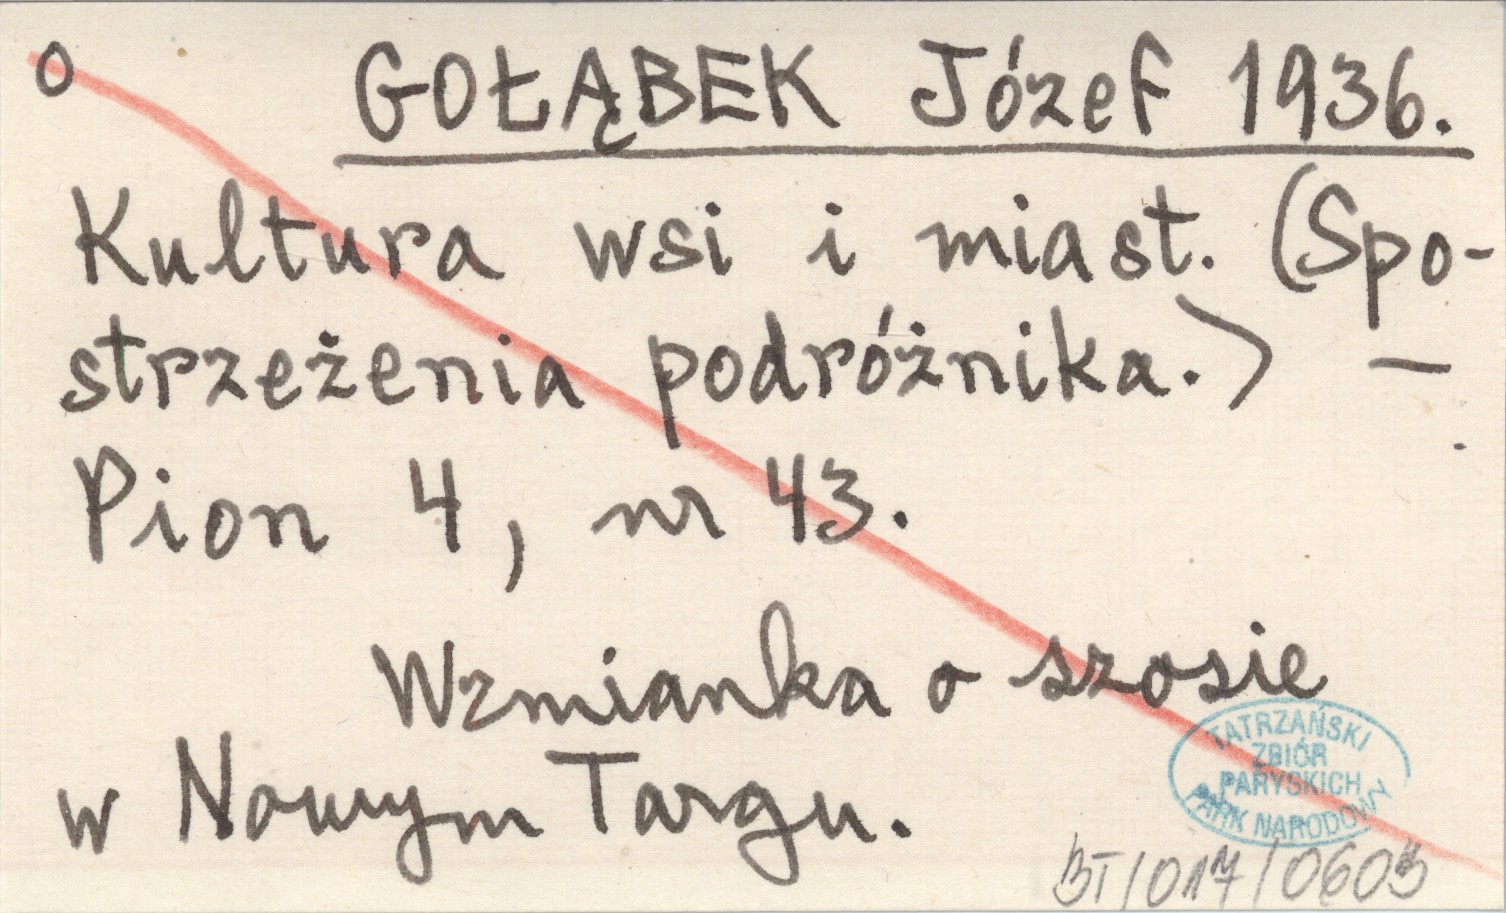 o GOŁĄBEK Józef 1936.
Kultura wsi i miast. (Spo-
strzeżenia podróżnika.) —
Pion 4, nr 43.
Wzmianka o szosie
w Nowym Targu.
TATRZAŃSKI
ZBIÓR
PARYSKICH
PARK NARODOWY
BT/017/0603